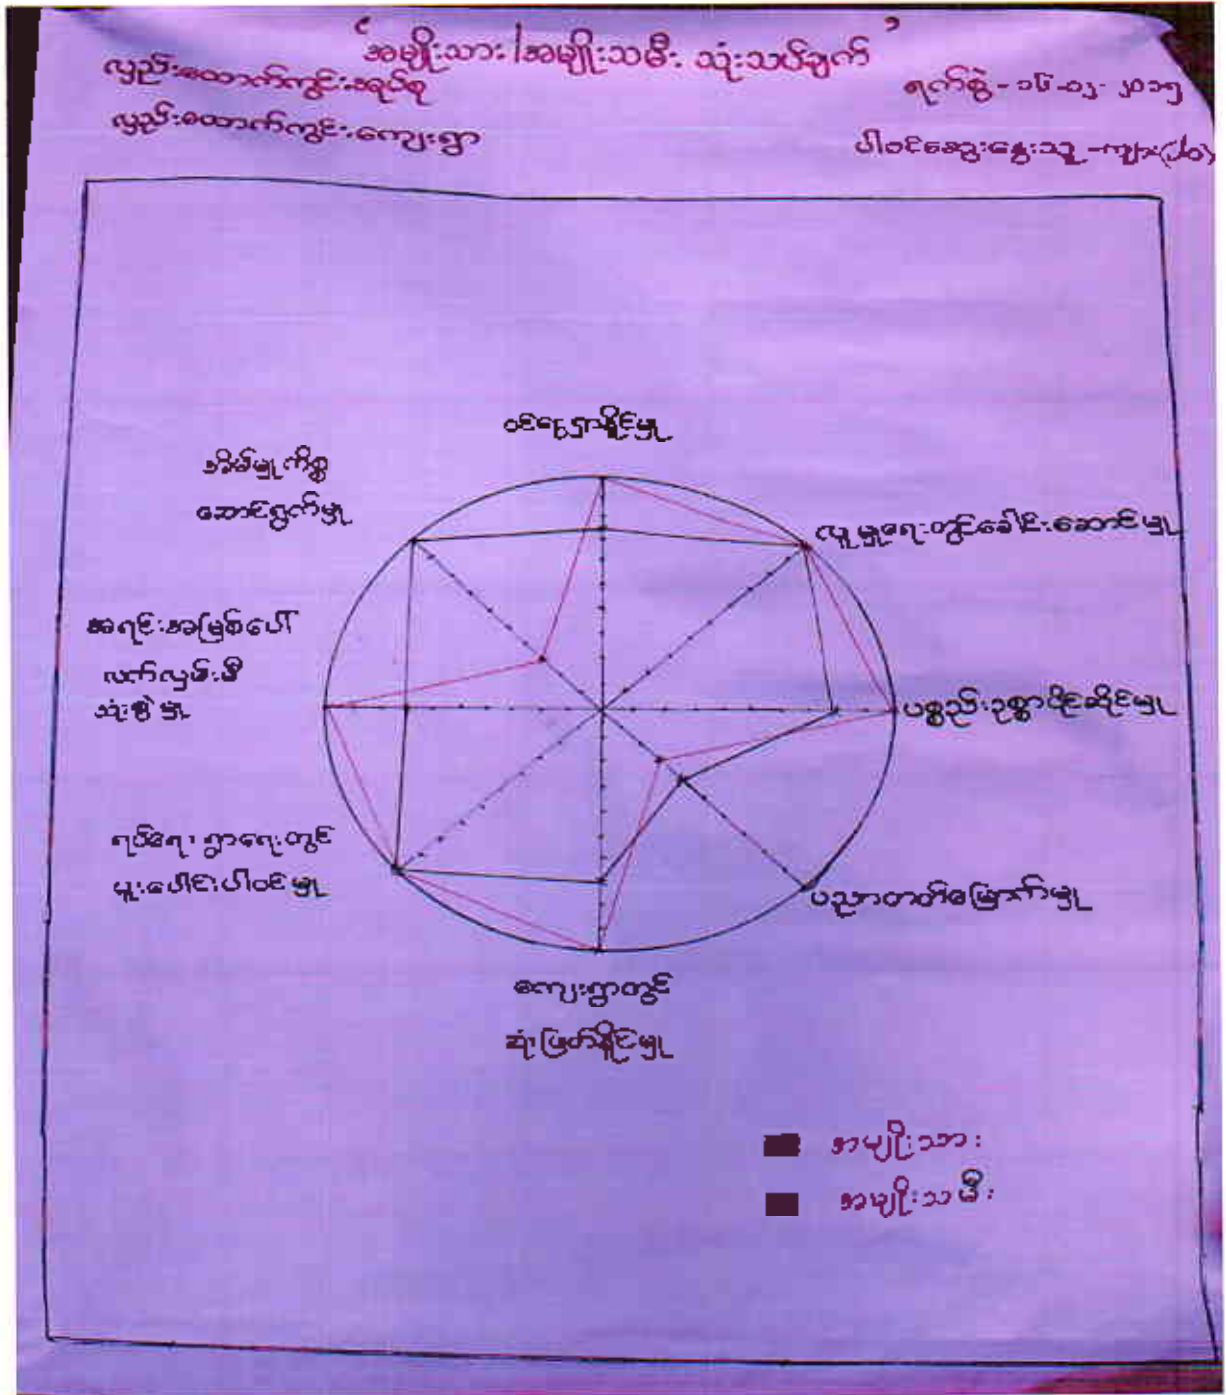 ‘အမျိုးသား/အမျိုးသမီး သုံးသပ်ချက်’
လှည်းထောက်ကွင်းအုပ်စု
လှည်းထောက်ကွင်းကျေးရွာ
ရက်စွဲ - ၁၆-၀၂-၂၀၁၅
ပါဝင်ဆွေးနွေးသူ -ကျား
ဝင်ငွေရှာနိုင်မှု
လူမှုရေးတွင်ခေါင်းဆောင်မှု
ပစ္စည်းဥစ္စာပိုင်ဆိုင်မှု
ပညာတတ်မြောက်မှု
ကျေးရွာတွင်
ဆုံးဖြတ်နိုင်မှု
ရပ်ရေး၊ရွာရေးတွင်
ပူးပေါင်းပါဝင်မှု
အရင်းအမြစ်ပေါ်
လက်လှမ်းမီ
သုံးစွဲမှု
အိမ်မှုကိစ္စ
ဆောင်ရွက်မှု
အမျိုးသား
အမျိုးသမီး